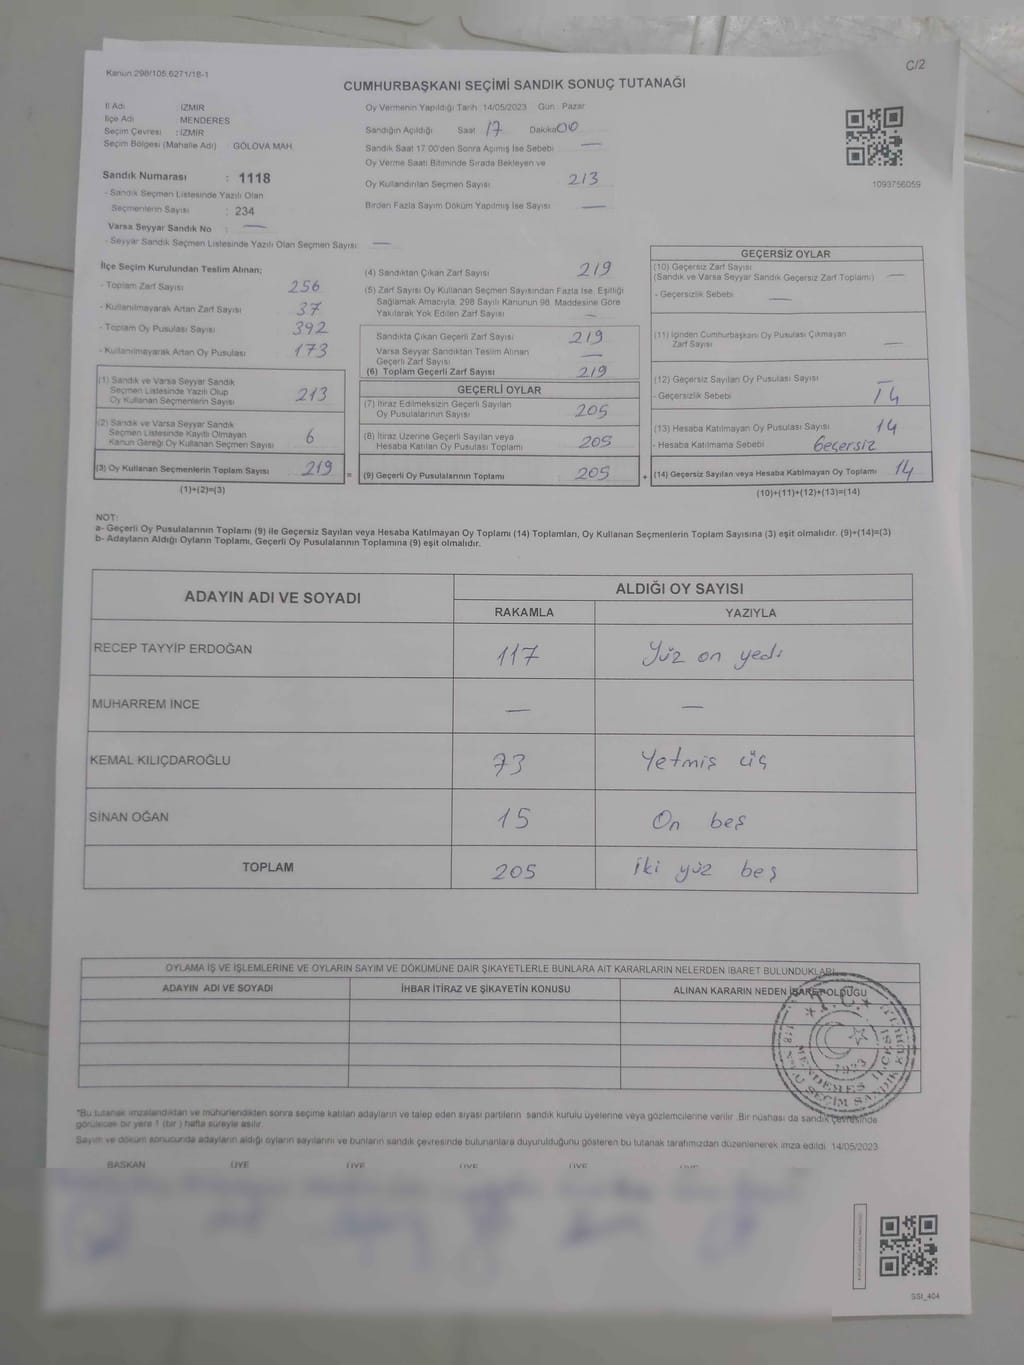 Kanun 298/105,6271/18-1
C/2
CUMHURBAŞKANI SEÇİMİ SANDIK SONUÇ TUTANAĞI
İl Adı : İZMİR
İlçe Adı : MENDERES
Seçim Çevresi : İZMİR
Seçim Bölgesi (Mahalle Adı) : GÖLOVA MAH.
Sandık Numarası : 1118
- Sandık Seçmen Listesinde Yazılı Olan
Seçmenlerin Sayısı : 234
Varsa Seyyar Sandık No : —
- Seyyar Sandık Seçmen Listesinde Yazılı Olan Seçmen Sayısı: —
Oy Vermenin Yapıldığı Tarih 14/05/2023 Gün : Pazar
Sandığın Açıldığı Saat 17 Dakika 00
Sandık Saat 17:00'den Sonra Açımış İse Sebebi —
Oy Verme Saati Bitiminde Sırada Bekleyen ve
Oy Kullandırılan Seçmen Sayısı 213
Birden Fazla Sayım Döküm Yapılmış İse Sayısı —
1093756059
İlçe Seçim Kurulundan Teslim Alınan;
- Toplam Zarf Sayısı 256
- Kullanılmayarak Artan Zarf Sayısı 37
- Toplam Oy Pusulası Sayısı 392
- Kullanılmayarak Artan Oy Pusulası 173
(1) Sandık ve Varsa Seyyar Sandık
Seçmen Listesinde Yazılı Olup
Oy Kullanan Seçmenlerin Sayısı 213
(2) Sandık ve Varsa Seyyar Sandık
Seçmen Listesinde Kayıtlı Olmayan
Kanun Gereği Oy Kullanan Seçmen Sayısı 6
(3) Oy Kullanan Seçmenlerin Toplam Sayısı 219 =
(1)+(2)=(3)
(4) Sandıktan Çıkan Zarf Sayısı 219
(5) Zarf Sayısı Oy Kullanan Seçmen Sayısından Fazla İse, Eşitliği
Sağlamak Amacıyla, 298 Sayılı Kanunun 98. Maddesine Göre
Yakılarak Yok Edilen Zarf Sayısı —
Sandıkta Çıkan Geçerli Zarf Sayısı 219
Varsa Seyyar Sandıktan Teslim Alınan
Geçerli Zarf Sayısı —
(6) Toplam Geçerli Zarf Sayısı 219
GEÇERLİ OYLAR
(7) İtiraz Edilmeksizin Geçerli Sayılan
Oy Pusulalarının Sayısı 205
(8) İtiraz Üzerine Geçerli Sayılan veya
Hesaba Katılan Oy Pusulası Toplamı 205
(9) Geçerli Oy Pusulalarının Toplamı 205 +
GEÇERSİZ OYLAR
(10) Geçersiz Zarf Sayısı
(Sandık ve Varsa Seyyar Sandık Geçersiz Zarf Toplamı) —
- Geçersizlik Sebebi —
(11) İçinden Cumhurbaşkanı Oy Pusulası Çıkmayan
Zarf Sayısı —
(12) Geçersiz Sayılan Oy Pusulası Sayısı —
- Geçersizlik Sebebi 14
(13) Hesaba Katılmayan Oy Pusulası Sayısı 14
- Hesaba Katılmama Sebebi Geçersiz
(14) Geçersiz Sayılan veya Hesaba Katılmayan Oy Toplamı 14
(10)+(11)+(12)+(13)=(14)
NOT:
a- Geçerli Oy Pusulalarının Toplamı (9) ile Geçersiz Sayılan veya Hesaba Katılmayan Oy Toplamı (14) Toplamları, Oy Kullanan Seçmenlerin Toplam Sayısına (3) eşit olmalıdır. (9)+(14)=(3)
b- Adayların Aldığı Oyların Toplamı, Geçerli Oy Pusulalarının Toplamına (9) eşit olmalıdır.
ADAYIN ADI VE SOYADI ALDIĞI OY SAYISI
RAKAMLA YAZIYLA
RECEP TAYYİP ERDOĞAN 117 Yüz on yedi
MUHARREM İNCE — —
KEMAL KILIÇDAROĞLU 73 Yetmiş üç
SİNAN OĞAN 15 On beş
TOPLAM 205 İki yüz beş
OYLAMA İŞ VE İŞLEMLERİNE VE OYLARIN SAYIM VE DÖKÜMÜNE DAİR ŞİKAYETLERLE BUNLARA AİT KARARLARIN NELERDEN İBARET BULUNDUKLARI
ADAYIN ADI VE SOYADI İHBAR İTİRAZ VE ŞİKAYETİN KONUSU ALINAN KARARIN NEDEN İBARET OLDUĞU
T.C.
1923
MENDERES İLÇESİ
1118 NOLU SEÇİM SANDIK KURULU
"Bu tutanak imzalandıktan ve mühürlendikten sonra seçime katılan adayların ve talep eden siyasi partilerin sandık kurulu üyelerine veya gözlemcilerine verilir. Bir nüshası da sandık çevresinde
görülecek bir yere 1 (bir) hafta süreyle asılır.
Sayım ve döküm sonucunda adayların aldığı oyların sayılarını ve bunların sandık çevresinde bulunanlara duyurulduğunu gösteren bu tutanak tarafımızdan düzenlenerek imza edildi. 14/05/2023
BAŞKAN ÜYE ÜYE ÜYE ÜYE ÜYE
SSI_404